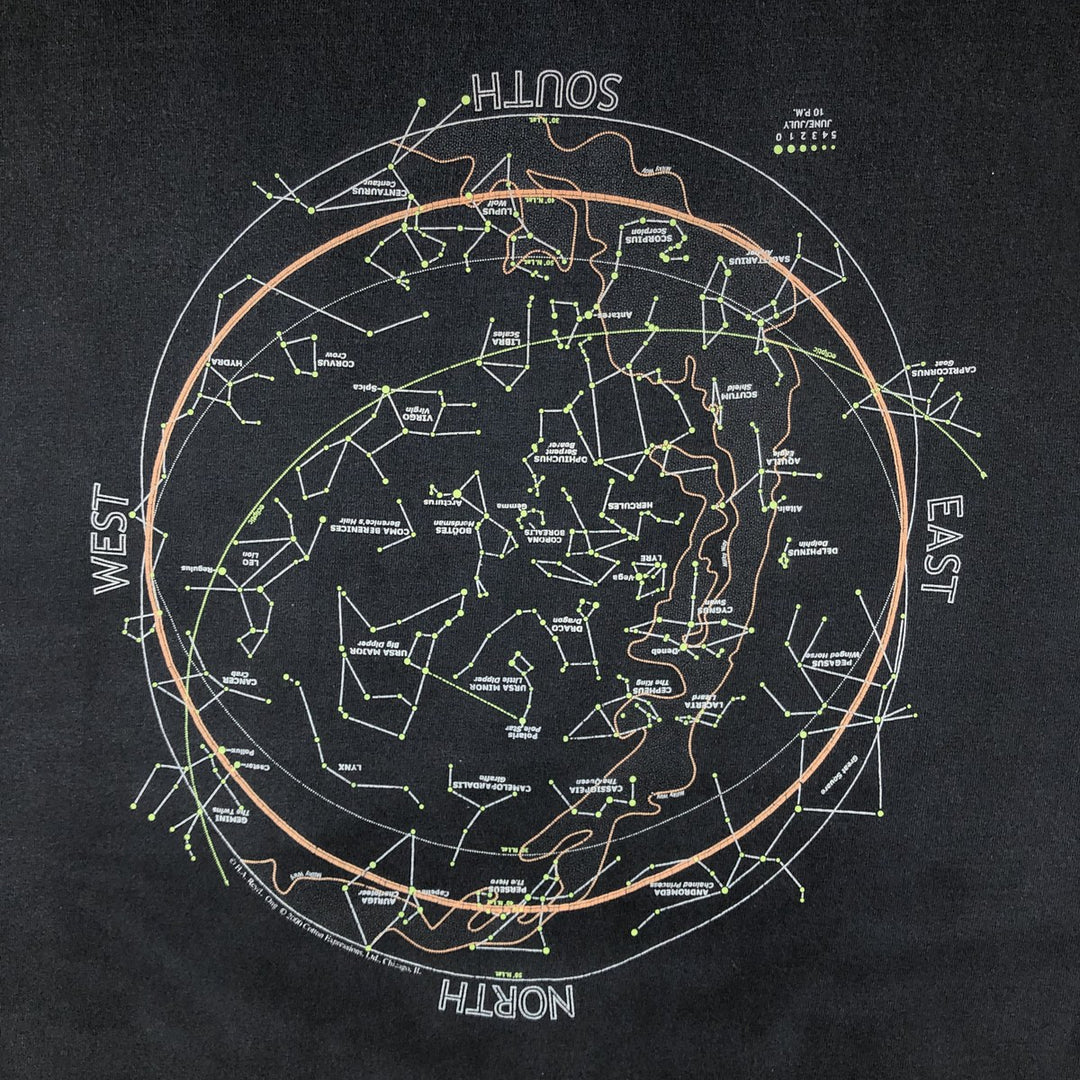 SOUTH
30° N.Lat.
JUNE/JULY
10 P.M.
5 4 3 2 1 0
Milky Way
CENTAURUS
Centaur
LUPUS
Wolf
40° N.Lat.
SCORPIUS
Scorpion
SAGITTARIUS
Archer
50° N.Lat.
Antares
LIBRA
Scales
ecliptic
CORVUS
Crow
HYDRA
CAPRICORNUS
Goat
Spica
VIRGO
Virgin
SCUTUM
Shield
OPHIUCHUS
Serpent
Bearer
AQUILA
Eagle
Arcturus
BOÖTES
Herdsman
Gemma
CORONA
BOREALIS
HERCULES
Altair
WEST
EAST
ecliptic
COMA BERENICES
Berenice's Hair
LEO
Lion
Regulus
LYRE
Vega
Milky Way
DELPHINUS
Dolphin
CYGNUS
Swan
Deneb
DRACO
Dragon
URSA MAJOR
Big Dipper
URSA MINOR
Little Dipper
Polaris
Pole Star
CEPHEUS
The King
LACERTA
Lizard
PEGASUS
Winged Horse
Great Square
CANCER
Crab
Pollux
Castor
GEMINI
The Twins
LYNX
CAMELOPARDALIS
Giraffe
CASSIOPEIA
The Queen
Milky Way
ANDROMEDA
Chained Princess
PERSEUS
The Hero
Capella
AURIGA
Charioteer
Milky Way
50° N.Lat.
NORTH
© H.A. Reyl, Orig. © 2000 Cotton Expressions, Ltd., Chicago, IL